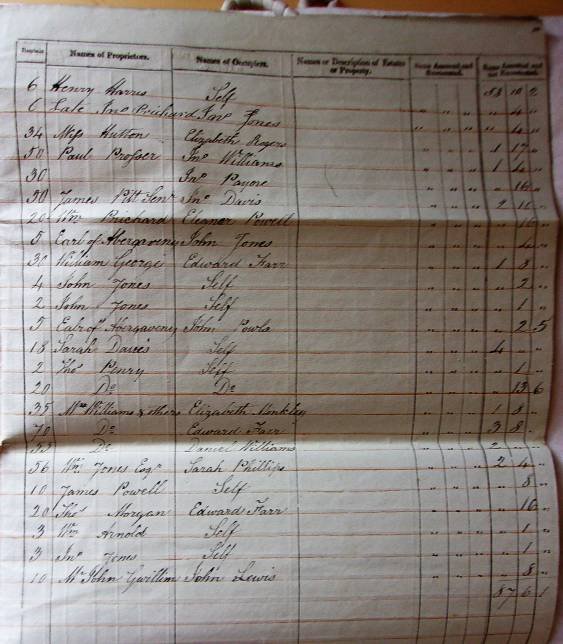 Rentals Names of Proprietors. Names of Occupiers. Names or Description of Estates or Property. Sums Assessed and Exonerated. Sums Assessed and not Exonerated.
6 Henry Harris Self 53 10 2
6 Late Jno Prichard Jno Jones " " " " 4 "
34 Miss Hutton Elizabeth Rogers " " " " 4 "
50 Paul Prosser Jno Williams 1 17 "
30 Jno Payne " " " 1 4 "
50 James Pitt Senr Jno Davis " " " " 16 "
20 Wm Prichard Eleanor Powell " " " 2 "
5 Earl of Abergaveny John Jones " " " " 16 "
30 William George Edward Farr " " " " 4 "
4 John Jones Self " " " 1 8 "
2 John Jones Self " " " " 2 "
5 Earl of Abergaveny John Powla " " " " 1 "
18 Sarah Davis Self " " " " 2 5
2 Thos Penry Self " " " 4 " "
20 Do Do " " " " 1 "
35 Mrs Williams & others Elizabeth Monkley " " " " 13 6
70 Do Edward Farr " " " 1 8 "
55 Do Daniel Williams " " " 3 8 "
56 Wm Jones Esqr Sarah Phillips " " " 2 4 "
10 James Powell Self " " " " 8 "
20 Thos Morgan Edward Farr " " " " 16 "
3 Wm Arnold Self " " " " 1 "
3 Jno Jones Self " " " " 1 "
10 Mr John Gwillim John Lewis " " " " 8 "
87 6 1